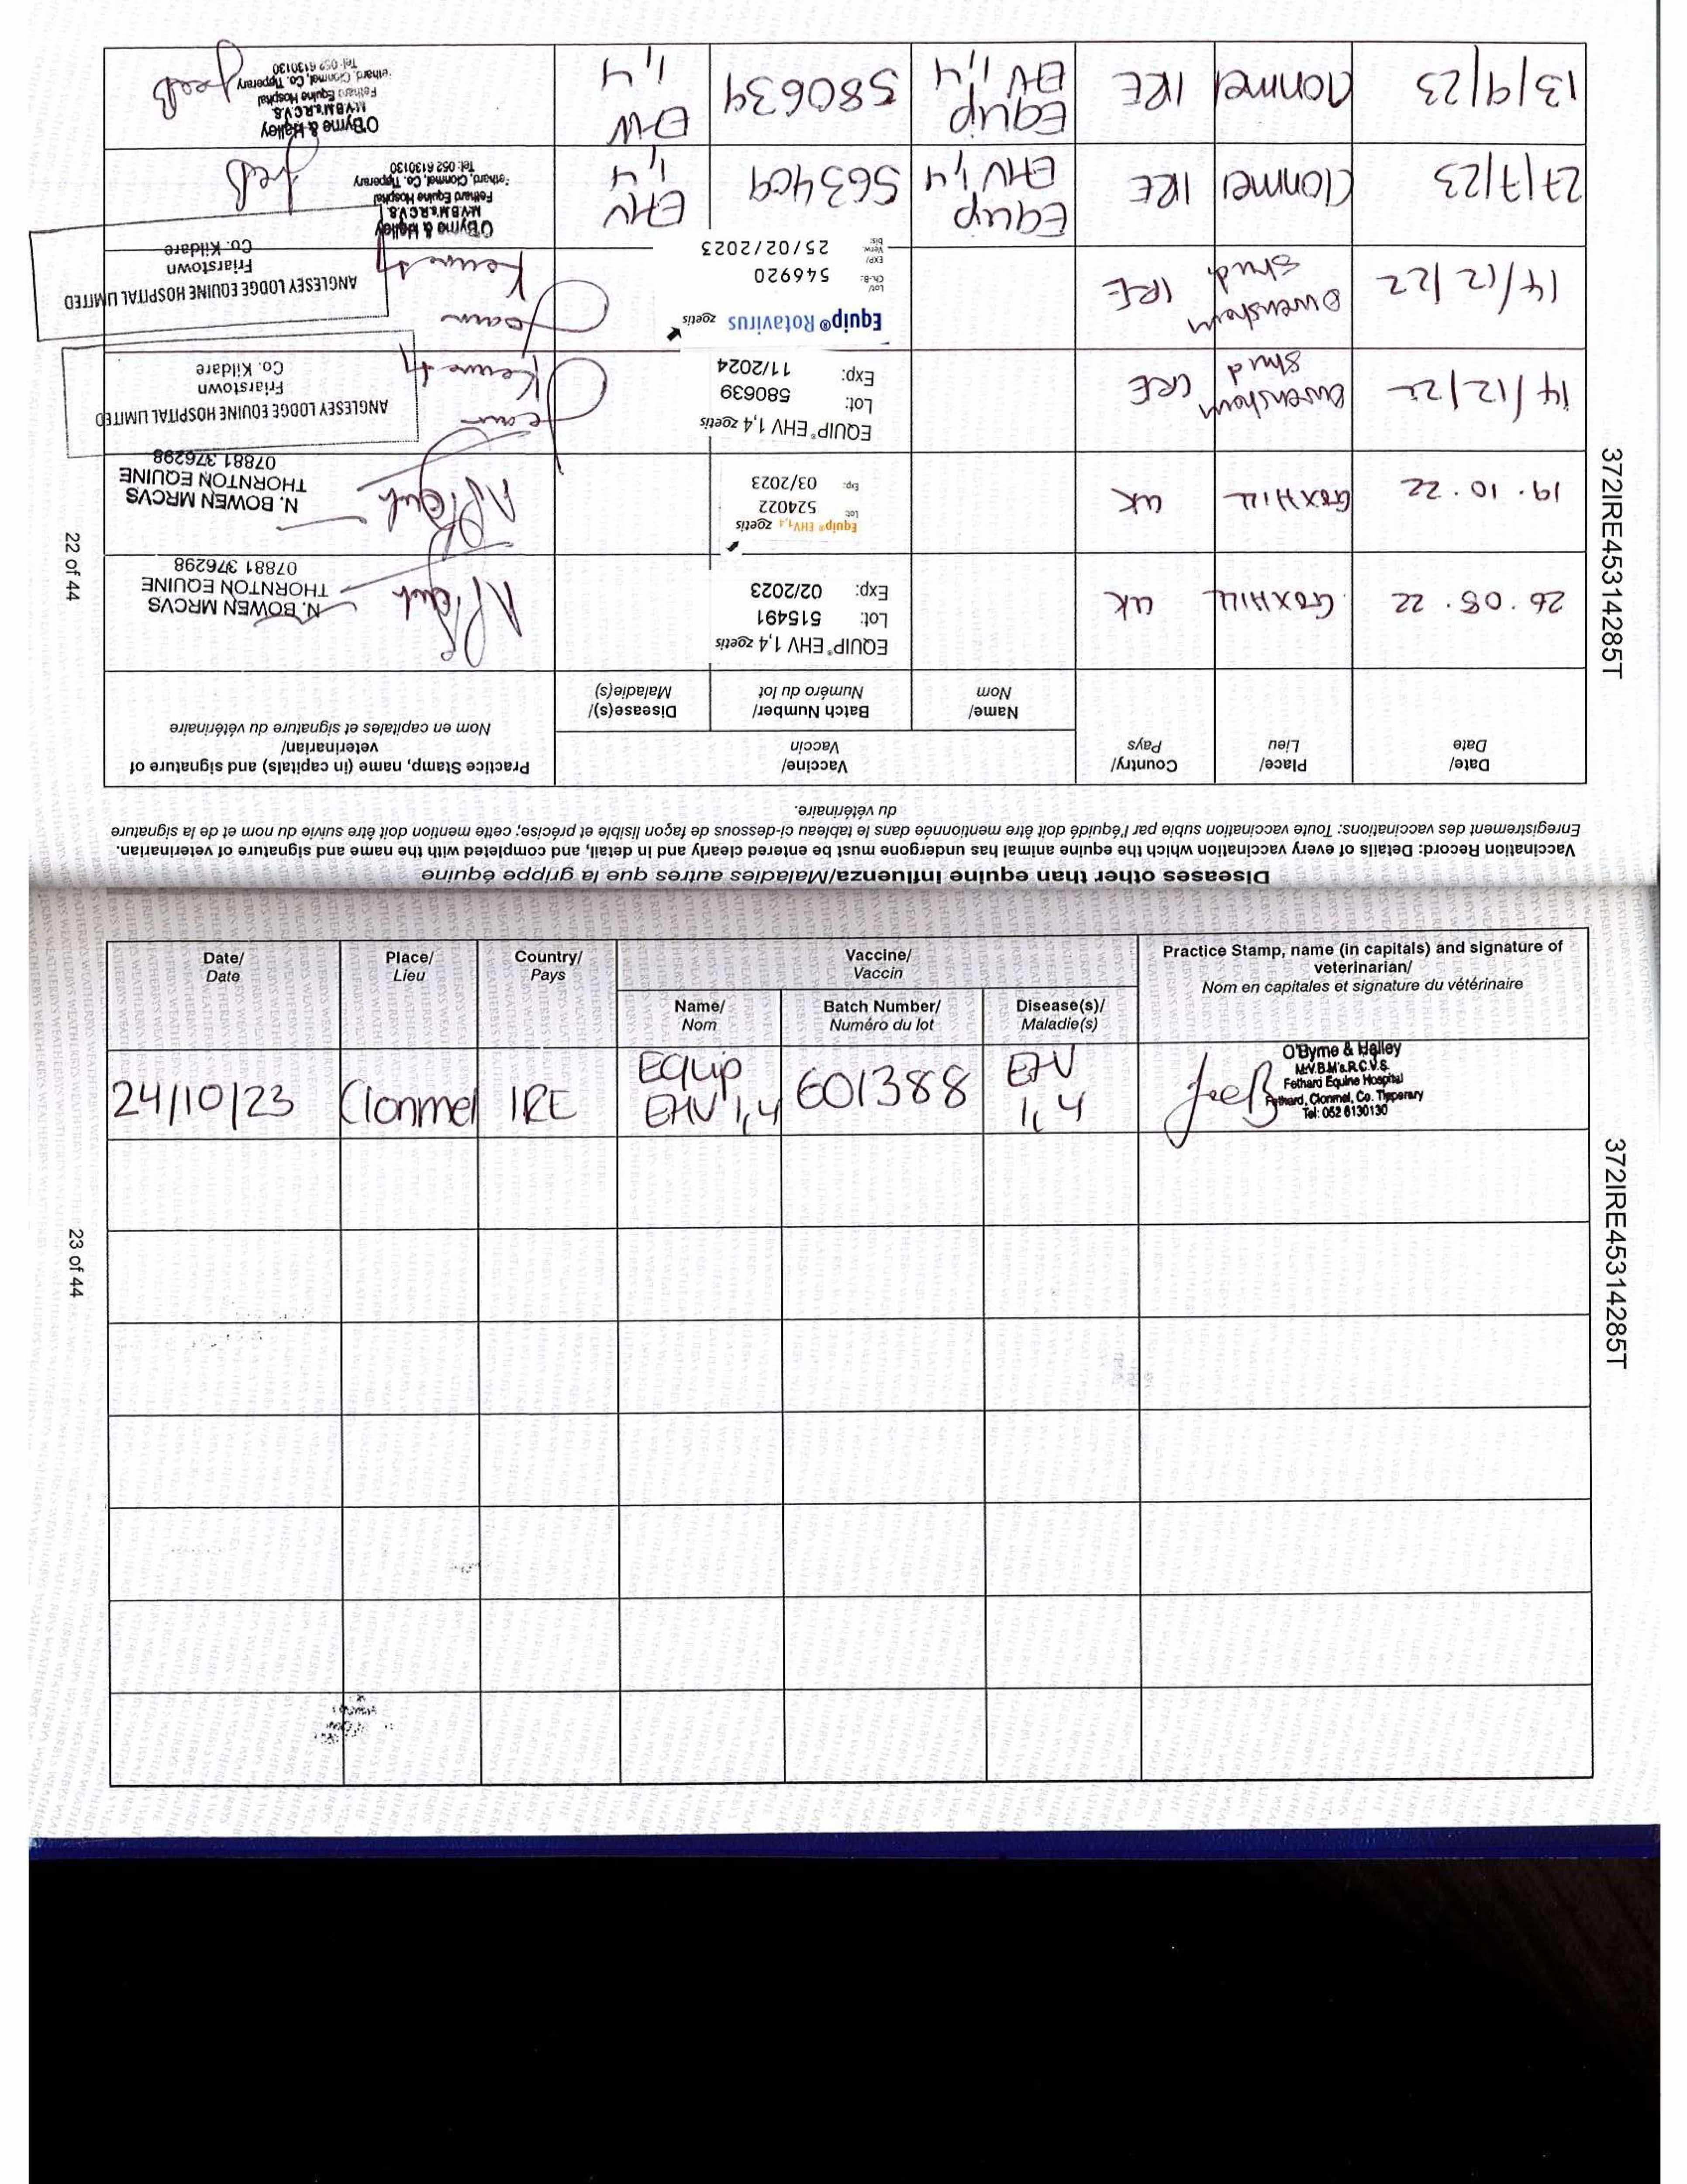 Diseases other than equine influenza/Maladies autres que la grippe équine
Vaccination Record: Details of every vaccination which the equine animal has undergone must be entered clearly and in detail, and completed with the name and signature of veterinarian.
Enregistrement des vaccinations: Toute vaccination subie par l'équidé doit être mentionnée dans le tableau ci-dessous de façon lisible et précise; cette mention doit être suivie du nom et de la signature
du vétérinaire.
Date/
Date
Place/
Lieu
Country/
Pays
Vaccine/
Vaccin
Name/
Nom
Batch Number/
Numéro du lot
Disease(s)/
Maladie(s)
Practice Stamp, name (in capitals) and signature of
veterinarian/
Nom en capitales et signature du vétérinaire
26.08.22
GOXHILL
UK
EQUIP® EHV 1,4 zoetis
Lot: 515491
Exp: 02/2023
N. BOWEN MRCVS
THORNTON EQUINE
07881 376298
19.10.22
GOXHILL
UK
Equip® EHV1,4 zoetis
Lot: 524022
Exp: 03/2023
N. BOWEN MRCVS
THORNTON EQUINE
07881 376298
14/12/22
Stud
IRE
EQUIP® EHV 1,4 zoetis
Lot: 580639
Exp: 11/2024
ANGLESEY LODGE EQUINE HOSPITAL LIMITED
Friarstown
Co. Kildare
14/12/22
Stud
IRE
Equip® Rotavirus zoetis
Lot/
Ch.-B.: 546920
EXP/
Verw.
bis: 25/02/2023
ANGLESEY LODGE EQUINE HOSPITAL LIMITED
Friarstown
Co. Kildare
27/7/23
Clonmel
IRE
Equip
EHV 1,4
563409
EHV
1,4
O'Byrne & Halley
M.V.B.M's.R.C.V.S.
Fethard Equine Hospital
Fethard, Clonmel, Co. Tipperary
Tel: 052 6130130
13/9/23
Clonmel
IRE
Equip
EHV 1,4
580639
EHV
1,4
O'Byrne & Halley
M.V.B.M's.R.C.V.S.
Fethard Equine Hospital
Fethard, Clonmel, Co. Tipperary
Tel: 052 6130130
22 of 44
372IRE45314285T
Date/
Date
Place/
Lieu
Country/
Pays
Vaccine/
Vaccin
Name/
Nom
Batch Number/
Numéro du lot
Disease(s)/
Maladie(s)
Practice Stamp, name (in capitals) and signature of
veterinarian/
Nom en capitales et signature du vétérinaire
24/10/23
Clonmel
IRE
Equip
EHV 1,4
601388
EHV
1,4
O'Byrne & Halley
M.V.B.M's.R.C.V.S.
Fethard Equine Hospital
Fethard, Clonmel, Co. Tipperary
Tel: 052 6130130
23 of 44
372IRE45314285T